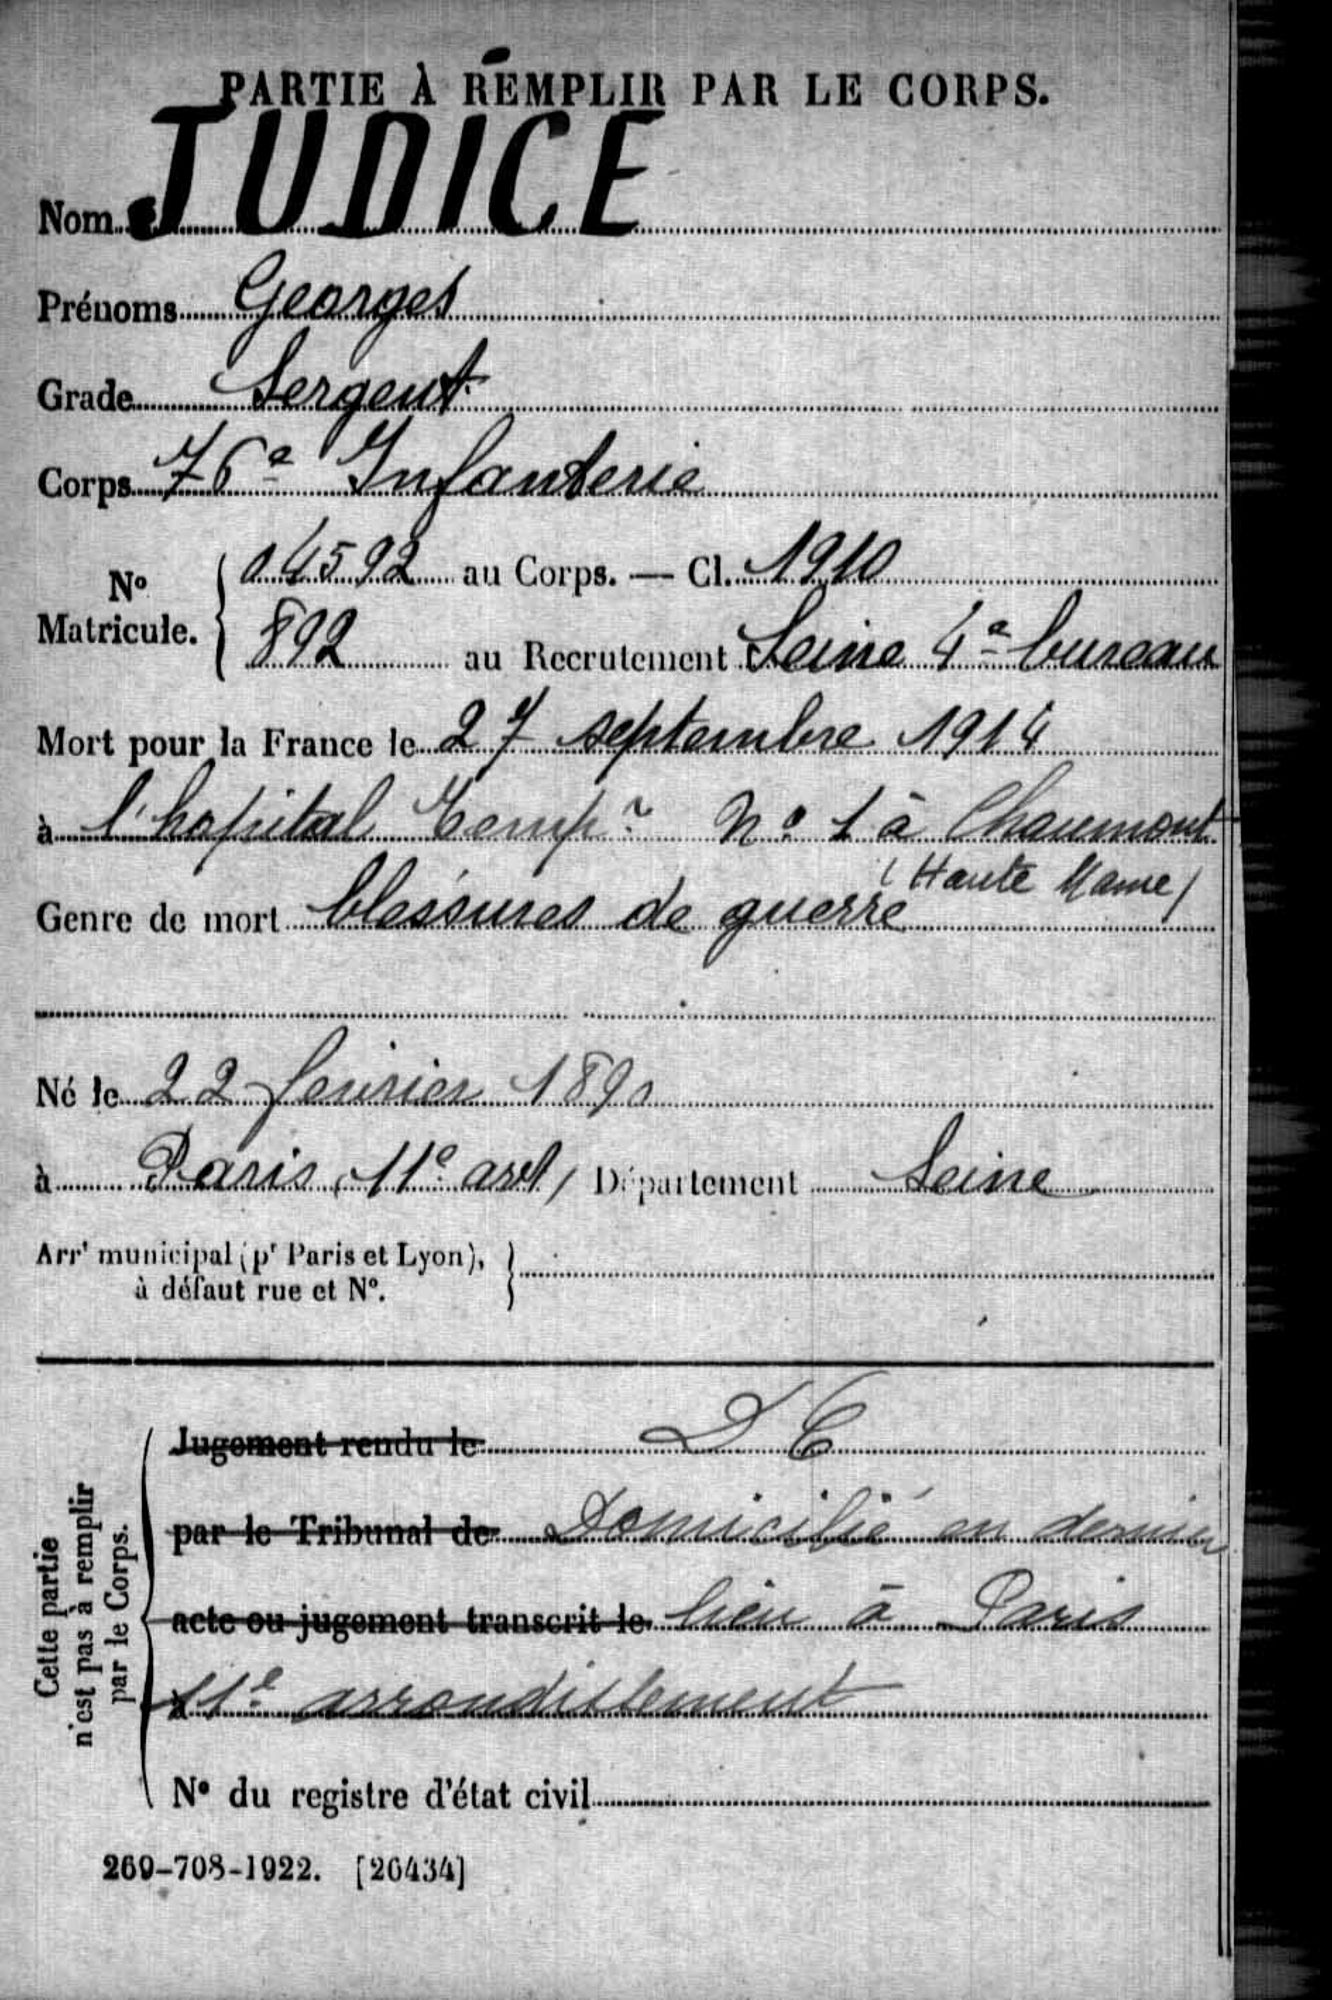 PARTIE À REMPLIR PAR LE CORPS.
Nom JUDICE
Prénoms Georges
Grade Sergent
Corps 76e Infanterie
No Matricule. { 04592 au Corps. — Cl. 1910
892 au Recrutement Seine 4e bureau
Mort pour la France le 27 septembre 1914
à l'hopital Tempre No 1 à Chaumont
(Haute Marne)
Genre de mort blessures de guerre
Né le 22 février 1890
à Paris (11e arrt) Département Seine
Arrt municipal (pr Paris et Lyon), à défaut rue et No. }
Cette partie n'est pas à remplir par le Corps.
Jugement rendu le D C
par le Tribunal de Domicilié en dernier
acte ou jugement transcrit le lieu à Paris
à 11e arrondissement
No du registre d'état civil
269-708-1922. [26434]